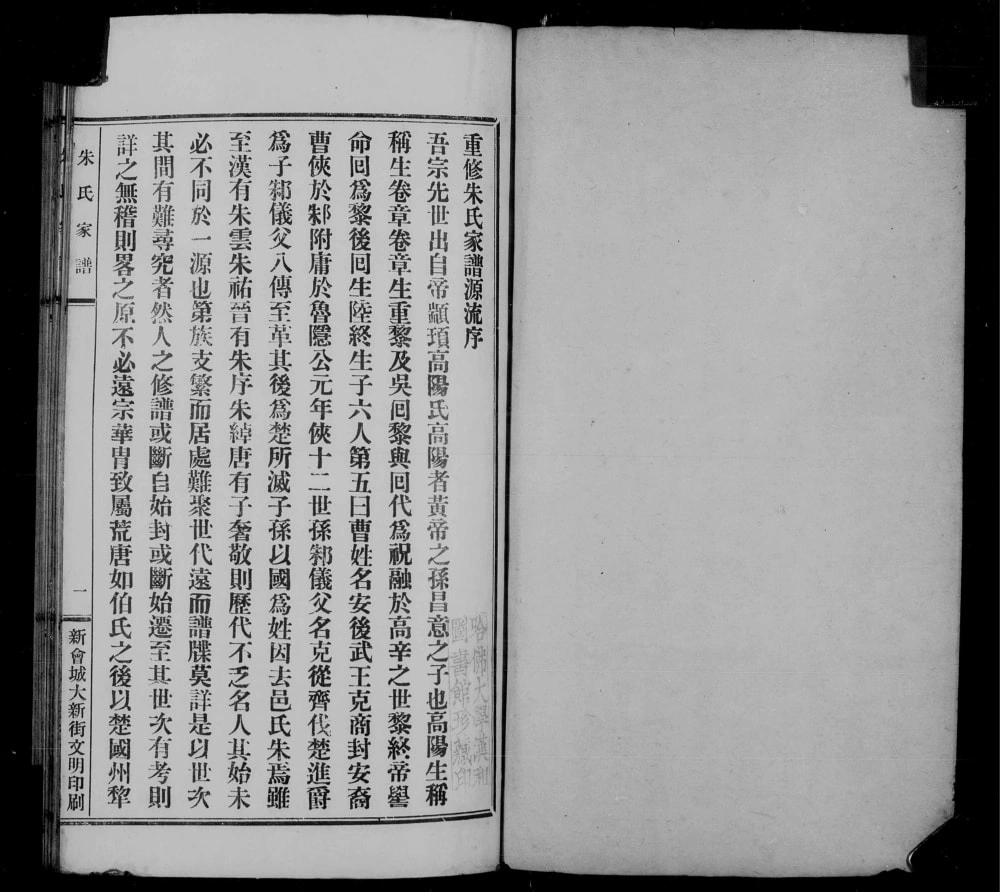 重修朱氏家譜源流序
吾宗先世出自帝顓頊高陽氏高陽者黃帝之孫昌意之子也高陽生稱
稱生卷章卷章生重黎及吳囘黎與囘代爲祝融於高辛之世黎終帝嚳
命囘爲黎後囘生陸終生子六人第五曰曹姓名安後武王克商封安裔
曹俠於邾附庸於魯隱公元年俠十二世孫邾儀父名克從齊伐楚進爵
爲子邾儀父八傳至革其後爲楚所滅子孫以國爲姓因去邑氏朱焉雖
至漢有朱雲朱祐晉有朱序朱綽唐有子奢敬則歷代不乏名人其始未
必不同於一源也第族支繁而居處難聚世代遠而譜牒莫詳是以世次
其間有難尋究者然人之修譜或斷自始封或斷始遷至其世次有考則
詳之無稽則畧之原不必遠宗華胄致屬荒唐如伯氏之後以楚國州犂
朱氏家譜
一
新會城大新街文明印刷
哈佛大學漢和
圖書館珍藏印